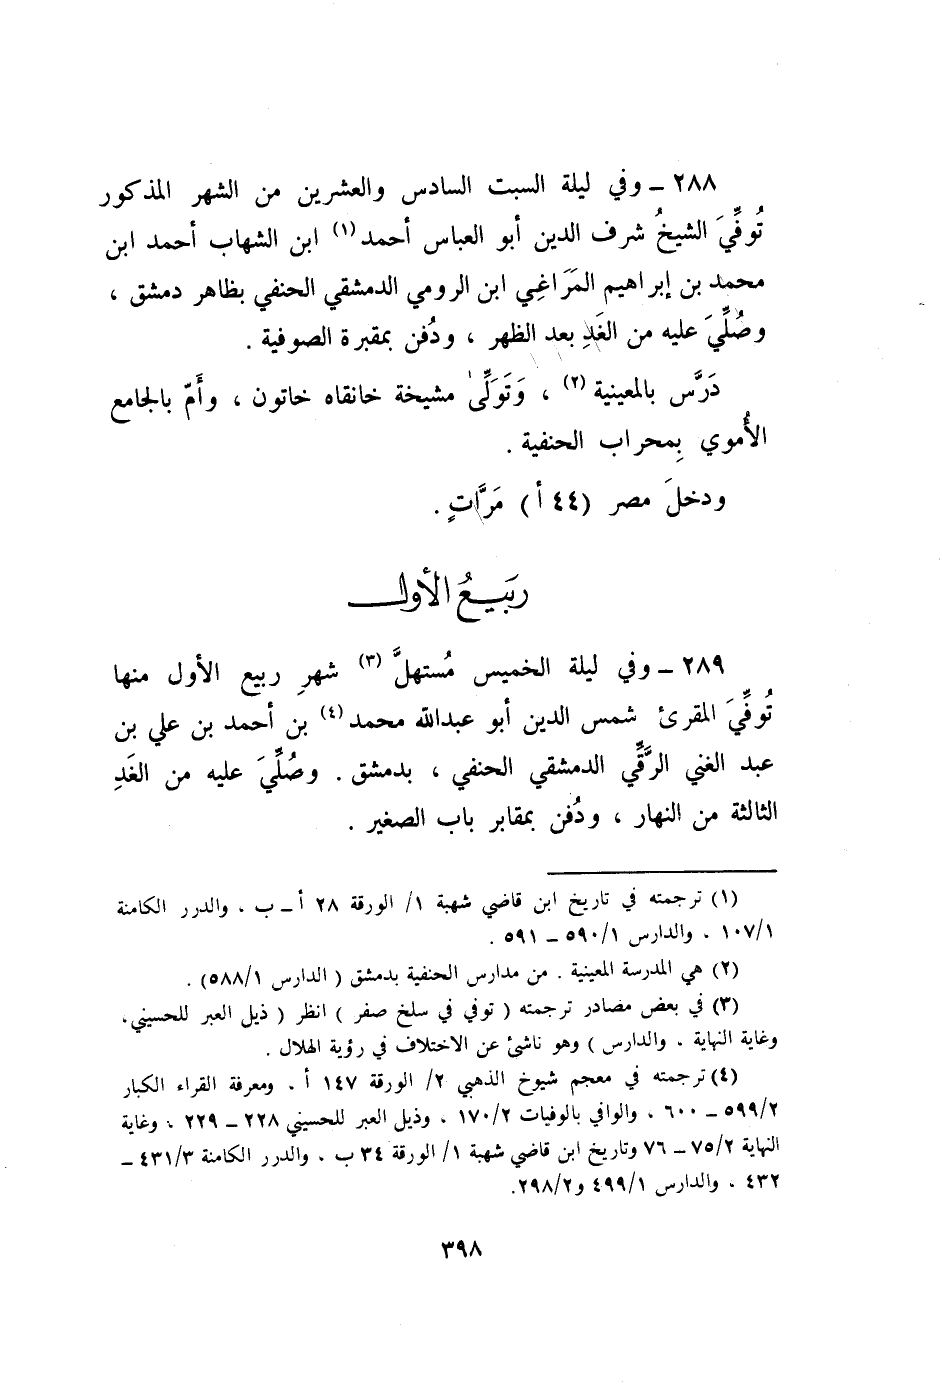 ٢٨٨ ـ وفي ليلة السبت السادس والعشرين من الشهر المذكور
تُوفِّيَ الشيخُ شرف الدين أبو العباس أحمد (١) ابن الشهاب أحمد ابن
محمد بن إبراهيم المَرَاغِي ابن الرومي الدمشقي الحنفي بظاهر دمشق ،
وصُلِّيَ عليه من الغَدِ بعد الظهر ، ودُفن بمقبرة الصوفية .
دَرَّس بالمعينية (٢) ، وَتَوَلَّىٰ مشيخة خانقاه خاتون ، وأَمّ بالجامع
الأُموي بِمحراب الحنفية .
ودخلَ مصر (٤٤ أ) مَرَّاتٍ .
ربَيعُ الأول
٢٨٩ ـ وفي ليلة الخميس مُستهلَّ (٣) شهرِ ربيع الأول منها
تُوفِّيَ المقرئ شمس الدين أبو عبدالله محمد (٤) بن أحمد بن علي بن
عبد الغني الرَّقِّي الدمشقي الحنفي ، بدمشق . وصُلِّيَ عليه من الغَدِ
الثالثة من النهار ، ودُفن بمقابر باب الصغير .
(١) ترجمته في تاريخ ابن قاضي شهبة ١/ الورقة ٢٨ أ ـ ب ، والدرر الكامنة
١٠٧/١ ، والدارس ٥٩٠/١ ـ ٥٩١ .
(٢) هي المدرسة المعينية . من مدارس الحنفية بدمشق ( الدارس ٥٨٨/١) .
(٣) في بعض مصادر ترجمته ( توفي في سلخ صفر ) انظر ( ذيل العبر للحسيني ،
وغاية النهاية ، والدارس ) وهو ناشئ عن الاختلاف في رؤية الهلال .
(٤) ترجمته في معجم شيوخ الذهبي ٢/ الورقة ١٤٧ أ ، ومعرفة القراء الكبار
٥٩٩/٢ ـ ٦٠٠ ، والوافي بالوفيات ١٧٠/٢ ، وذيل العبر للحسيني ٢٢٨ ـ ٢٢٩ ، وغاية
النهاية ٧٥/٢ ـ ٧٦ وتاريخ ابن قاضي شهبة ١/ الورقة ٣٤ ب ، والدرر الكامنة ٤٣١/٣ ـ
٤٣٢ ، والدارس ٤٩٩/١ و٢٩٨/٢.
٣٩٨